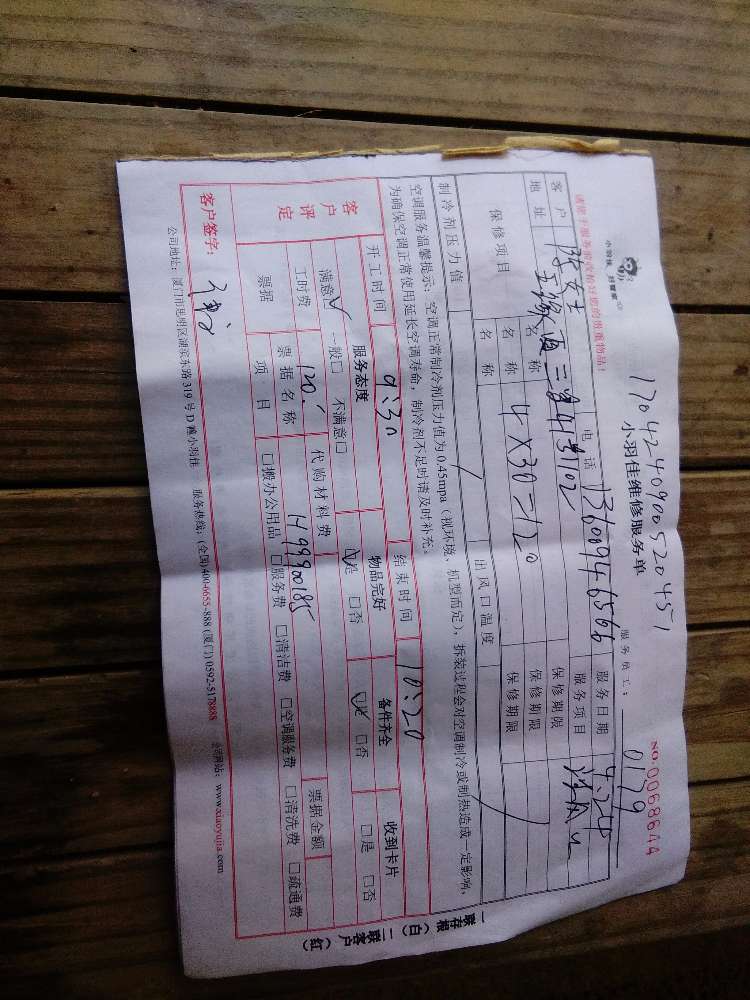 17042409005204 51
小羽佳 好管家
小羽佳维修服务单
NO:0068644
请您于服务前收拾好您的贵重物品！
服务员工：0179
客户 陈女士 电话 13609465666 服务日期 4.24
地址 三号 102 服务项目
保修项目 名称 4×30=120 保修期限
名称 保修期限
名称 保修期限
制冷剂压力值 / 出风口温度 /
空调服务温馨提示：空调正常制冷剂压力值为0.45mpa（视环境、机型而定），拆装过程会对空调制冷或制热造成一定影响，
为确保空调正常使用延长空调寿命，制冷剂不足时请及时补充。
开工时间 9:30 结束时间 10:20
客户评定 服务态度 物品完好 备件齐全 收到卡片
满意□✓ 一般□ 不满意□ ☑是 □否 ☑是 □否 □是 □否
工时费 120. 代购材料费
票据 票据名称 H99900185 票据金额
项目 □搬办公用品 □服务费 □清洁费 □空调服务费 □清洗费 □疏通费
客户签字：
公司地址：厦门市思明区湖滨东路319号D幢小羽佳 服务热线：(全国)4006655-888 (厦门) 0592-5178888 公司网站：www.xiaoyujia.com
一联存根（白） 二联客户（红）